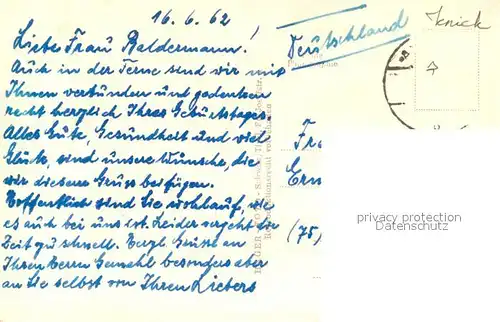 16.6.62
Liebe Frau Baldermann!
Auch in der Ferne sind wir mit
Ihnen verbunden und gedenken
recht herzlich Ihres Geburtstages.
Alles Gute, Gesundheit und viel
Glück, sind unsere Wünsche, die
wir diesem Gruss beifügen.
Hoffentlich sind Sie wohlauf, wie
es auch bei uns ist. Leider vergeht die
Zeit zu schnell. Herzl Grüsse an
Ihren Herrn Gemahl besonders aber
an Sie selbst von Ihren Lieberts
Deutschland
Knick
Fra
Ern
(75)
privacy protection
Datenschutz